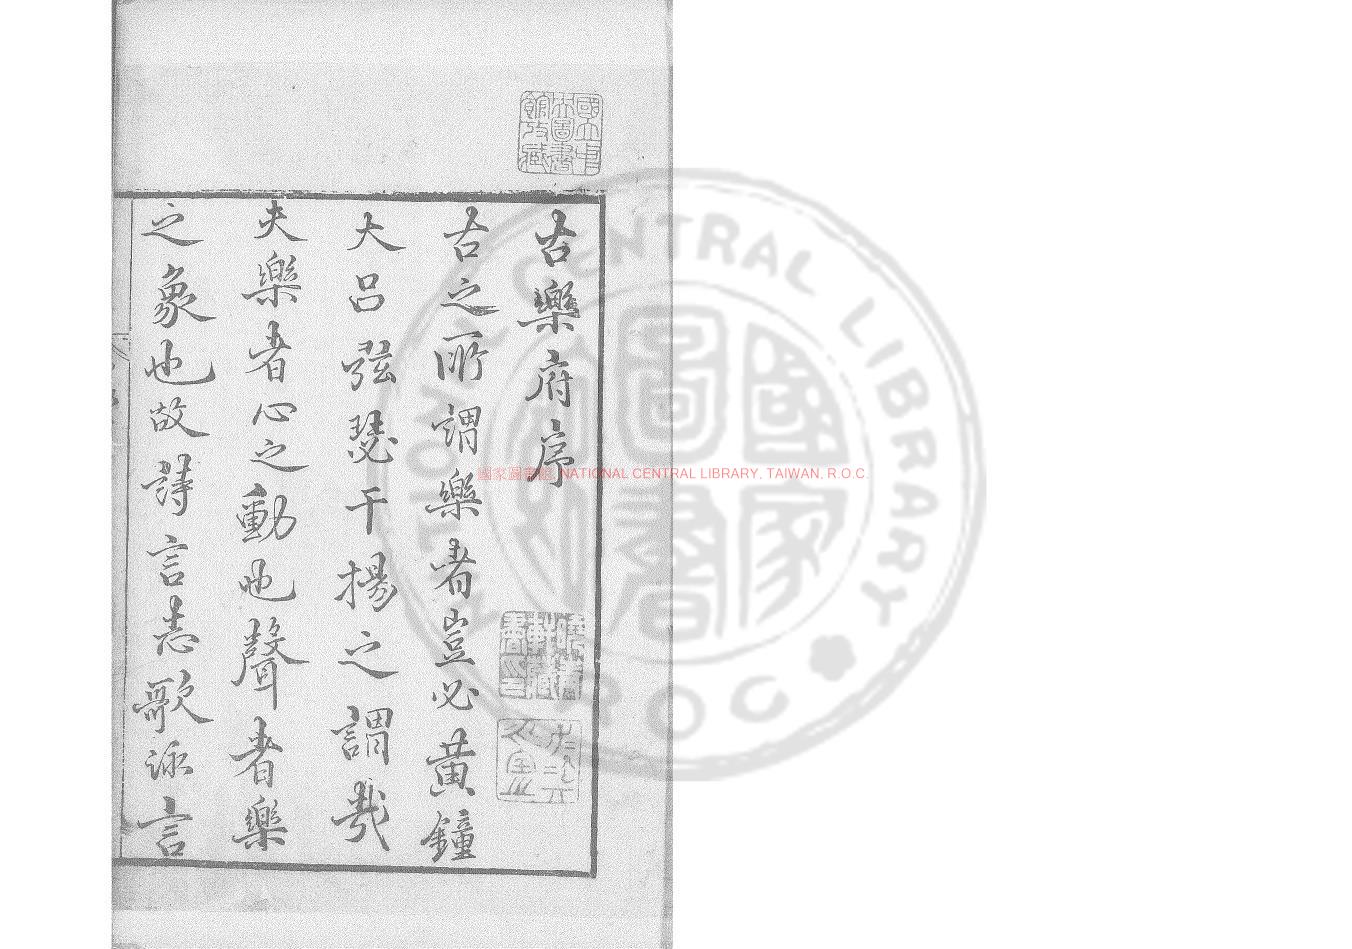 古樂府序
古之所謂樂者豈必黃鐘
大呂弦瑟干揚之謂哉
夫樂者心之動也聲者樂
之象也故詩言志歌詠言
國家圖書館, NATIONAL CENTRAL LIBRARY, TAIWAN, R.O.C.
國立中央圖書館收藏
NATIONAL CENTRAL LIBRARY
R O C
國家圖書